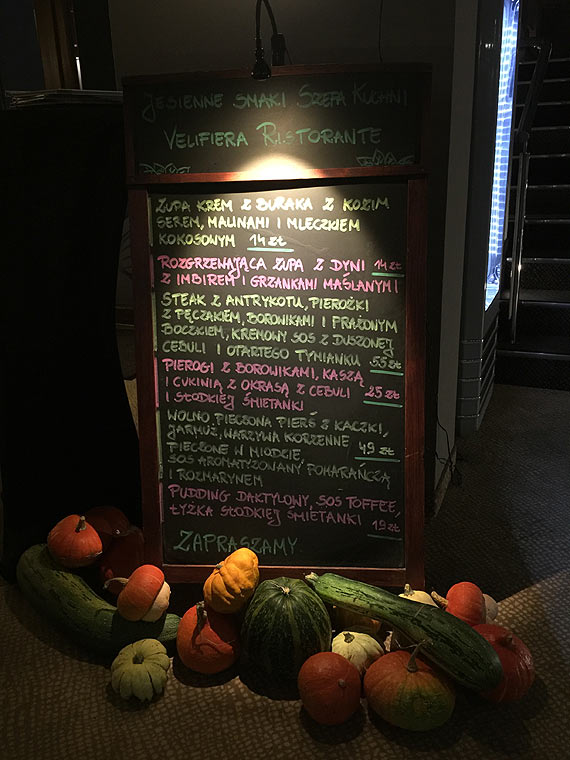 Jesienne smaki Szefa Kuchni
Velifiera Ristorante
Zupa krem z buraka z kozim
serem, malinami i mleczkiem
kokosowym 14 zł
Rozgrzewająca zupa z dyni 14 zł
z imbirem i grzankami maślanymi
Steak z antrykotu, pierożki
z pęczakiem, borowikami i prażonym
boczkiem, kremowy sos z duszonej
cebuli i otartego tymianku 55 zł
Pierogi z borowikami, kaszą
i cukinią z okrasą z cebuli 25 zł
i słodkiej śmietanki
Wolno pieczona pierś z kaczki,
jarmuż, warzywa korzenne 49 zł
pieczone w miodzie,
sos aromatyzowany pomarańczą
i rozmarynem
Pudding daktylowy, sos toffee,
łyżka słodkiej śmietanki 19 zł
Zapraszamy